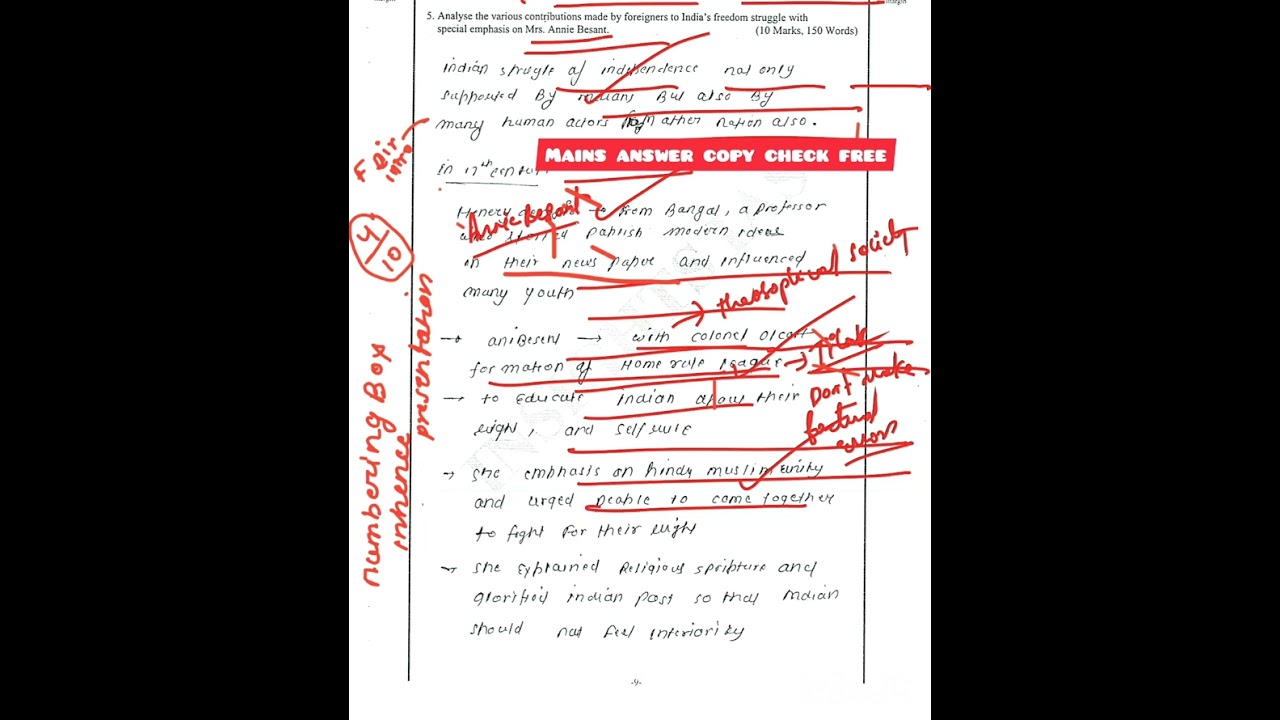 5. Analyse the various contributions made by foreigners to India's freedom struggle with
special emphasis on Mrs. Annie Besant. (10 Marks, 150 Words)
indian strugle of independence not only
supported By indians But also By
many human actors from other nation also.
MAINS ANSWER COPY CHECK FREE
in 17th centu
Henery → from Bangal, a professor
Annie Besant
who started Publish modern ideas
in their news paper and influenced
many youth
→ theosophical society
→ aniBesent → with colonel olcott
formation of Home rule league → Tilak
→ to educate indian about their
right, and self rule
Don't make
factual
errors
→ she emphasis on hindu muslim unity
and urged people to come together
to fight for their right
→ she explained Religious scripture and
glorified indian past so that indian
should not feel inferiority
-9-
Dir
intro
4/10
numbering Box
inhence
presentation
margin